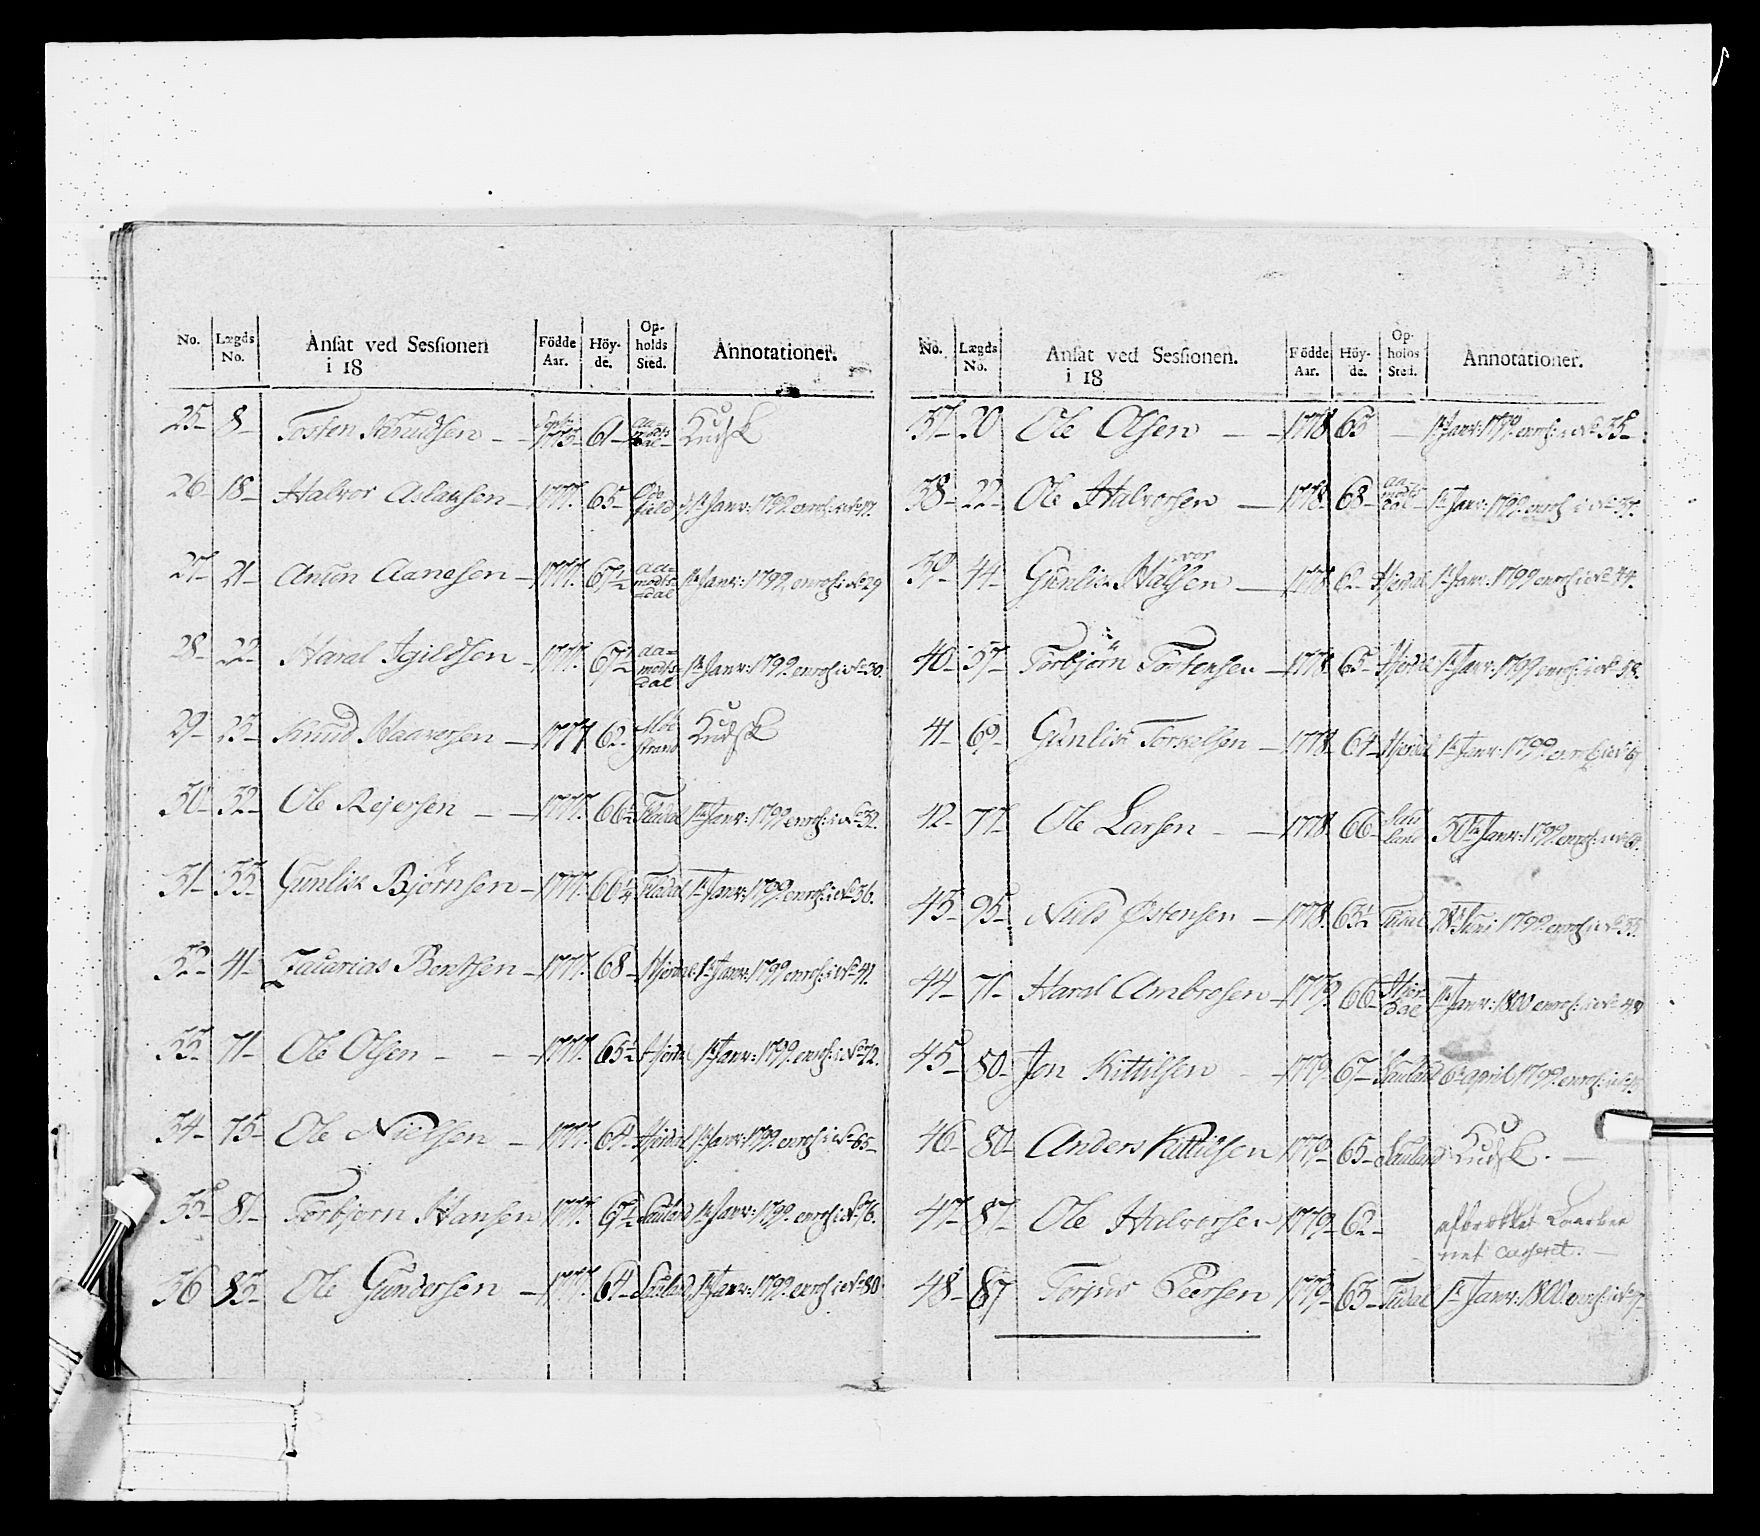 No. Lægds No. Ansat ved Sessionen i 18 Födde Aar. Höyde. Opholds Sted. Annotationer.
25 8 Tosten Knudsen 61 Kudsk
26 18 Halvor Aslaksen 1777. 65 1ste Janv: 1799 enrol: i No 17.
27 21 Anun Aanesen 1777. 67½ Aamodtsdal 1ste Janv: 1799 enrol: i No 29
28 22 Haral Igildsen 1777. 67½ Aamodtsdal 1ste Janv: 1799 enrol: i No 30.
29 25 Knud Haavorsen 1777 62 Möestrand Kudsk
30 32 Ole Rejersen 1777. 66½ Fladal 1ste Janv: 1799 enrol: i No 32.
31 33 Gunlik Bjørnsen 1777. 66¼ Fladal 1ste Janv: 1799 enrol: i No 36.
32 41 Zacarias Bentsen 1777. 68 Hjerdal 1ste Janv: 1799 enrol: i No 41.
33 71 Ole Olsen 1777. 65½ Hjerdal 1ste Janv: 1799 enrol: i No 72.
34 75 Ole Nielsen 1777. 64 Hjerdal 1ste Janv: 1799 enrol: i No 65
35 81 Torbjorn Hansen 1777. 67½ Sauland 1ste Janv: 1799 enrol: i No 76.
36 83 Ole Gundersen 1777. 64 Sauland 1ste Janv: 1799 enrol: i No 80
No. Lægds No. Ansat ved Sessionen. i 18 Födde Aar. Höyde. Opholds Sted. Annotationer.
37 20 Ole Olsen 1778 63 1ste Janv: 1799 enrol: i No 35
38 22 Ole Halvorsen 1778. 68 Aamodtsdal 1ste Janv: 1799 enrol: i No 37.
39 44 Gunlik Halvorsen 1778 62 Hjerdal 1ste Janv: 1799 enrol: i No 44.
40 57 Torbjørn Tostensen 1778 65 Hjerdal 1ste Janv: 1799 enrol: i No 58.
41 69 Gunlik Torkelsen 1778 64 Hjerdal 1ste Janv: 1799 enrol: i No
42 77 Ole Larsen 1778. 66 Sauland Janv: 1799 enrol: i No
43 95 Niels Østensen 1778. 63½ Tudal Juni 1799 enrol: i No 33.
44 71 Haral Ambrosen 1779 66 Hjerdal 1ste Janv: 1800 enrol: i No
45 80 Jon Kittilsen 1779 67 Sauland 6te april 1799 enrol: i No
46 80 Anders Kittilsen 1779 65 Sauland Kudsk.
47 87 Ole Halvorsen 1779 62 afbrækket Laarbeenet casseret.
48 87 Torjus Peersen 1779 63 Tudal 1ste Janv: 1800 enrol: i No